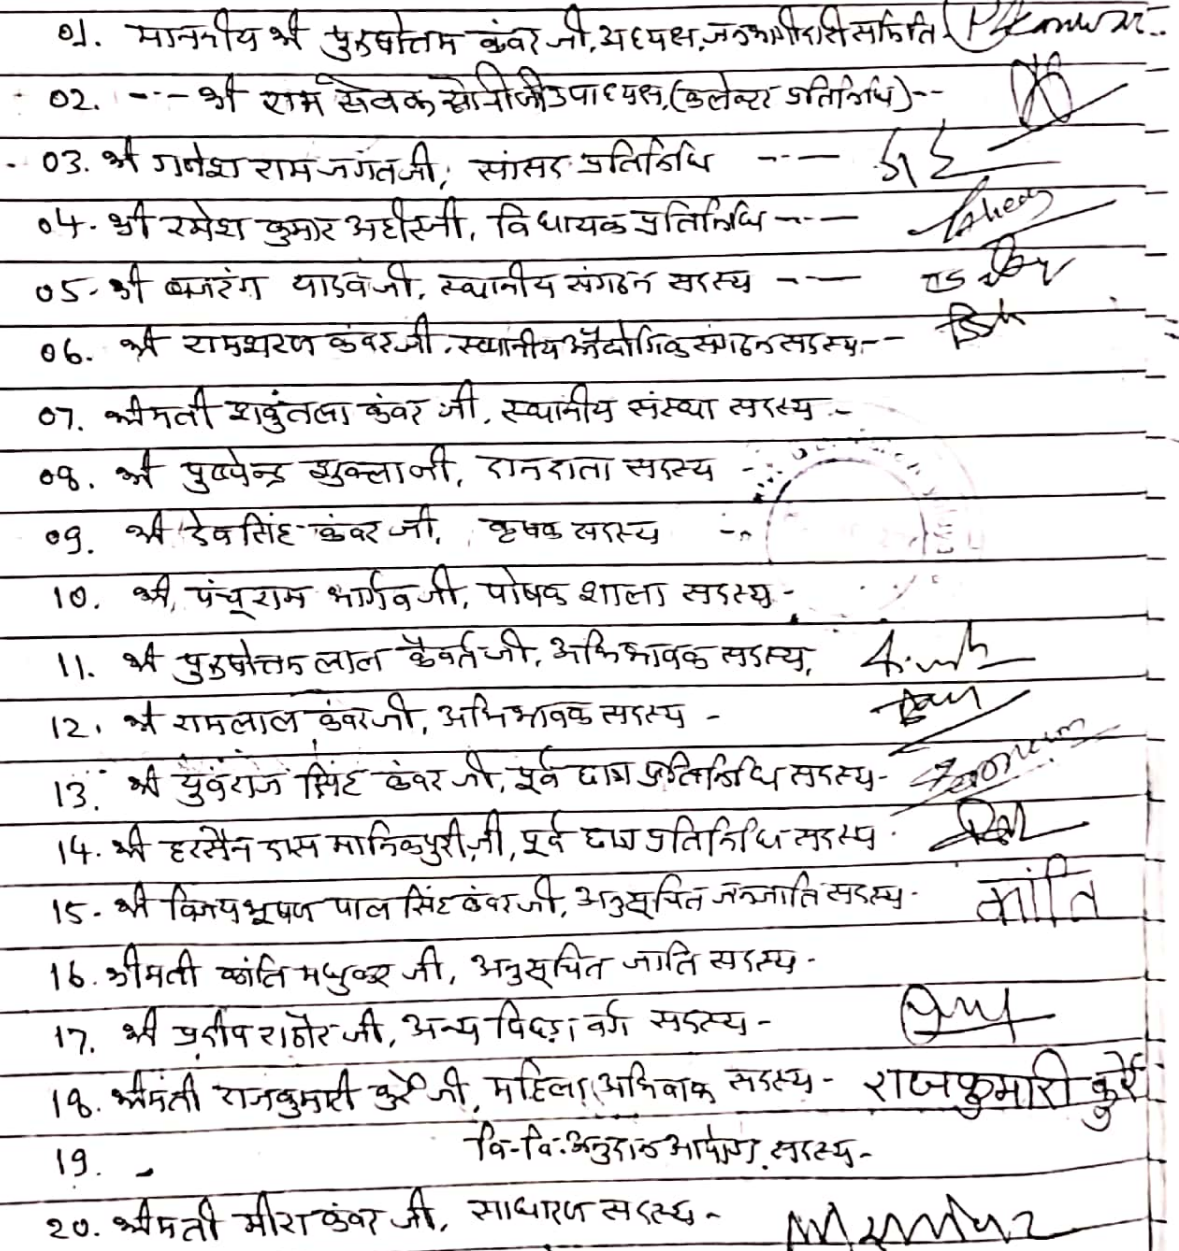 01. माननीय श्री पुरुषोत्तम कंवर जी, अध्यक्ष, जनभागीदारी समिति P Kanwar
02. --- श्री राम सेवक सोनी जी उपाध्यक्ष, (कलेक्टर प्रतिनिधि) --
03. श्री गनेश राम जगत जी, सांसद प्रतिनिधि ---
04. श्री रमेश कुमार अहीर जी, विधायक प्रतिनिधि ---
05. श्री बजरंग यादव जी, स्थानीय संगठन सदस्य ---
06. श्री रामशरण कंवर जी, स्थानीय औद्योगिक संगठन सदस्य --
07. श्रीमती शकुंतला कंवर जी, स्थानीय संस्था सदस्य -
08. श्री पुष्पेन्द्र शुक्ला जी, दानदाता सदस्य -
09. श्री देव सिंह कंवर जी, कृषक सदस्य --
10. श्री पंचूराम भार्गव जी, पोषक शाला सदस्य -
11. श्री पुरुषोत्तम लाल कैवर्त जी, अभिभावक सदस्य,
12. श्री रामलाल कंवर जी, अभिभावक सदस्य -
13. श्री युवराज सिंह कंवर जी, पूर्व छात्र प्रतिनिधि सदस्य -
14. श्री दास मानिकपुरी जी, पूर्व छात्र प्रतिनिधि सदस्य
15. श्री विजय भूषण पाल सिंह कंवर जी, अनुसूचित जनजाति सदस्य - कांति
16. श्रीमती कांति मधुकर जी, अनुसूचित जाति सदस्य -
17. श्री प्रदीप राठौर जी, अन्य पिछड़ा वर्ग सदस्य -
18. श्रीमती राजकुमारी कुर्रे जी, महिला अभिवाक सदस्य - राजकुमारी कुर्रे
19. - वि.वि. अनुदान आयोग, सदस्य -
20. श्रीमती मीरा कंवर जी, साधारण सदस्य -